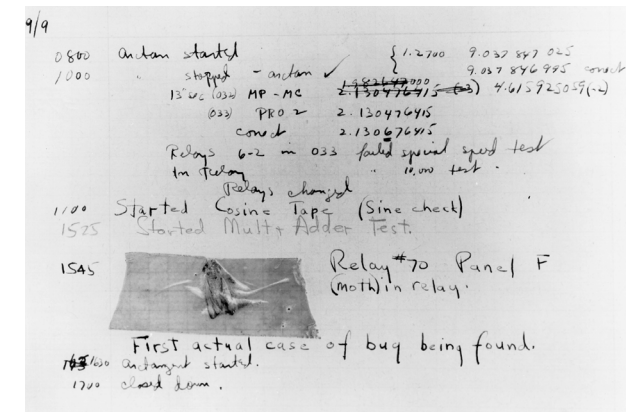 9/9
0800 antan started { 1.2700 9.037 847 025
1000 " stopped - antan ✓ 9.037 846 995 conect
13" uc (032) MP - MC 2.130476415 (-3) 4.615925059(-2)
(033) PRO 2 2.130476415
conect 2.130676415
Relays 6-2 in 033 failed special speed test
In Relay " 10,000 test .
Relays changed
1100 Started Cosine Tape (Sine check)
1525 Started Mult + Adder Test.
1545 Relay #70 Panel F
(moth) in relay.
First actual case of bug being found.
1630 antangent started.
1700 closed down.